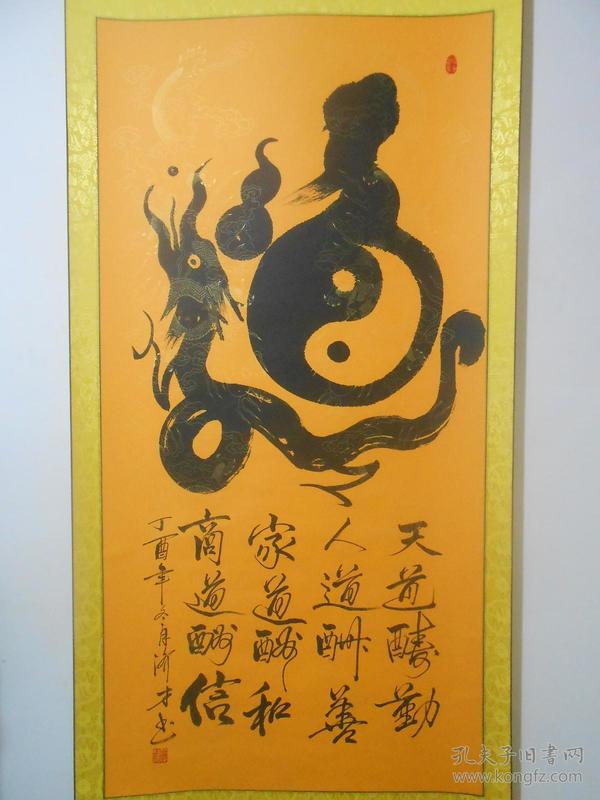 道
天道酬勤
人道酬善
家道酬和
商道酬信
丁酉年冬月济才书
孔夫子旧书网
www.kongfz.com